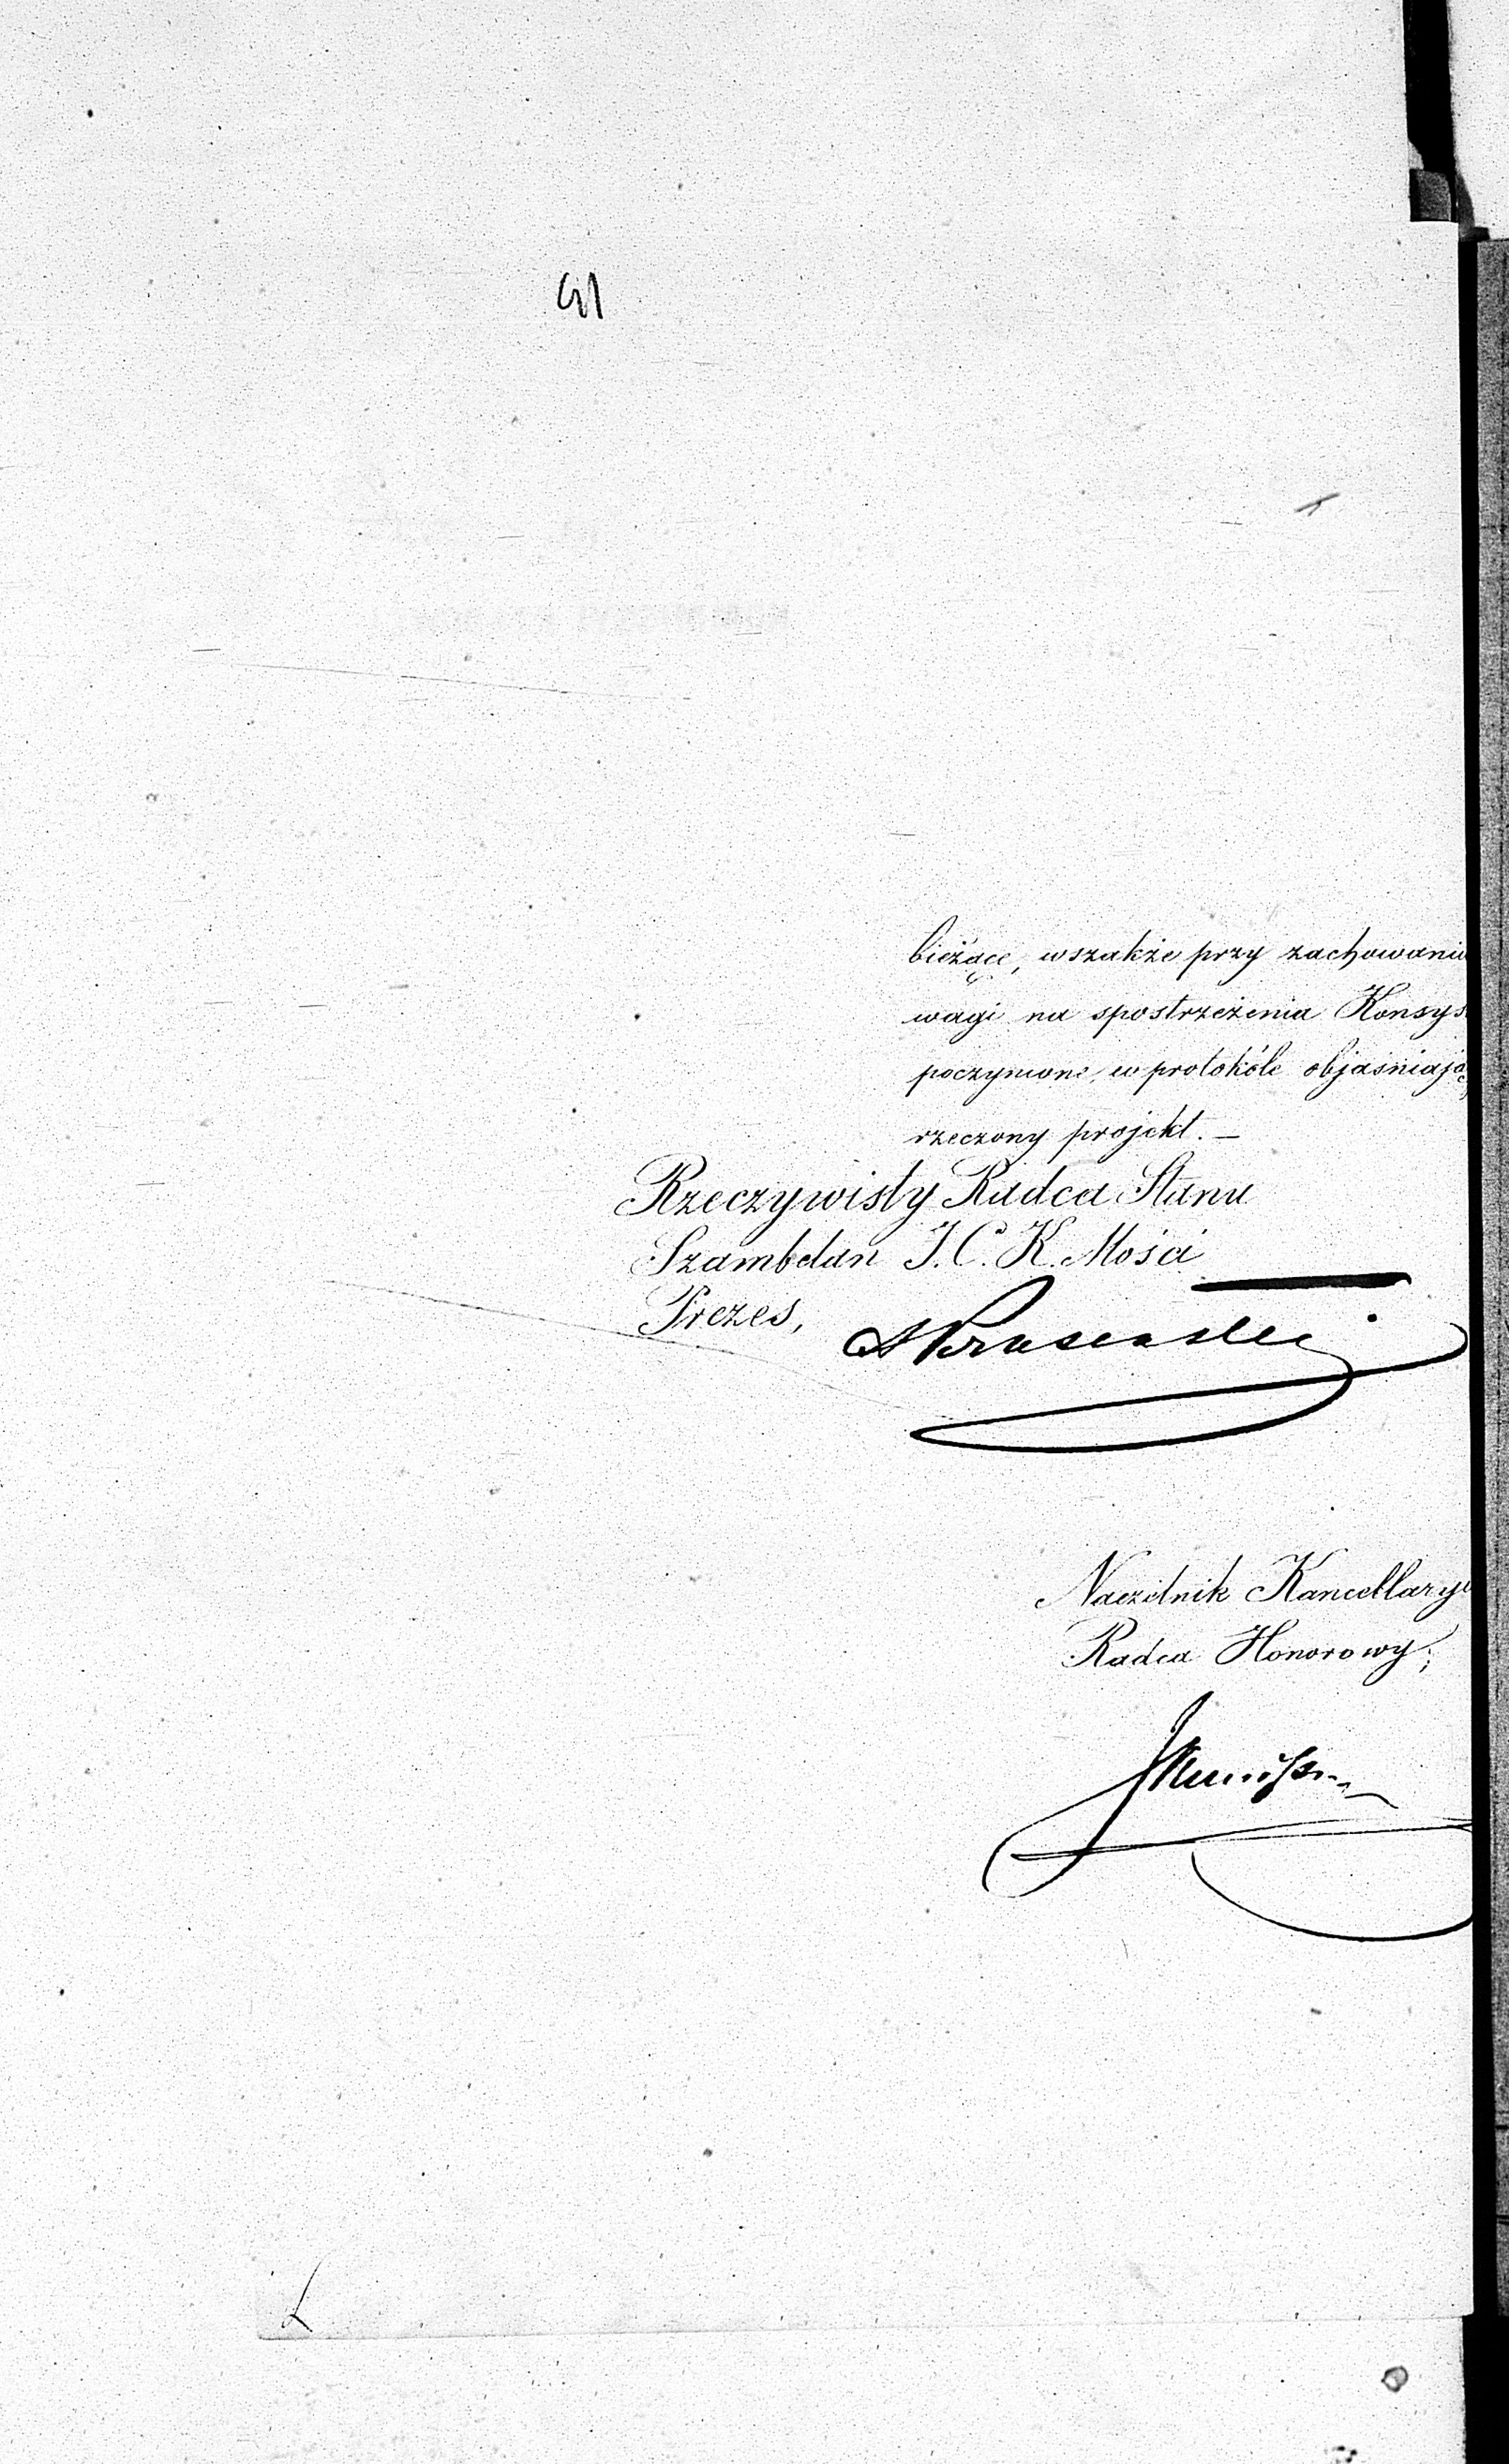 bieżące, wszakże przy zachowaniu
wagi na spostrzeżenia Konsys
poczynione, w protokóle objaśniają
rzeczony projekt. —
Rzeczywisty Radca Stanu
Szambelan J. C. K. Mości
Prezes,
Naczelnik Kancellaryi
Radca Honorowy;